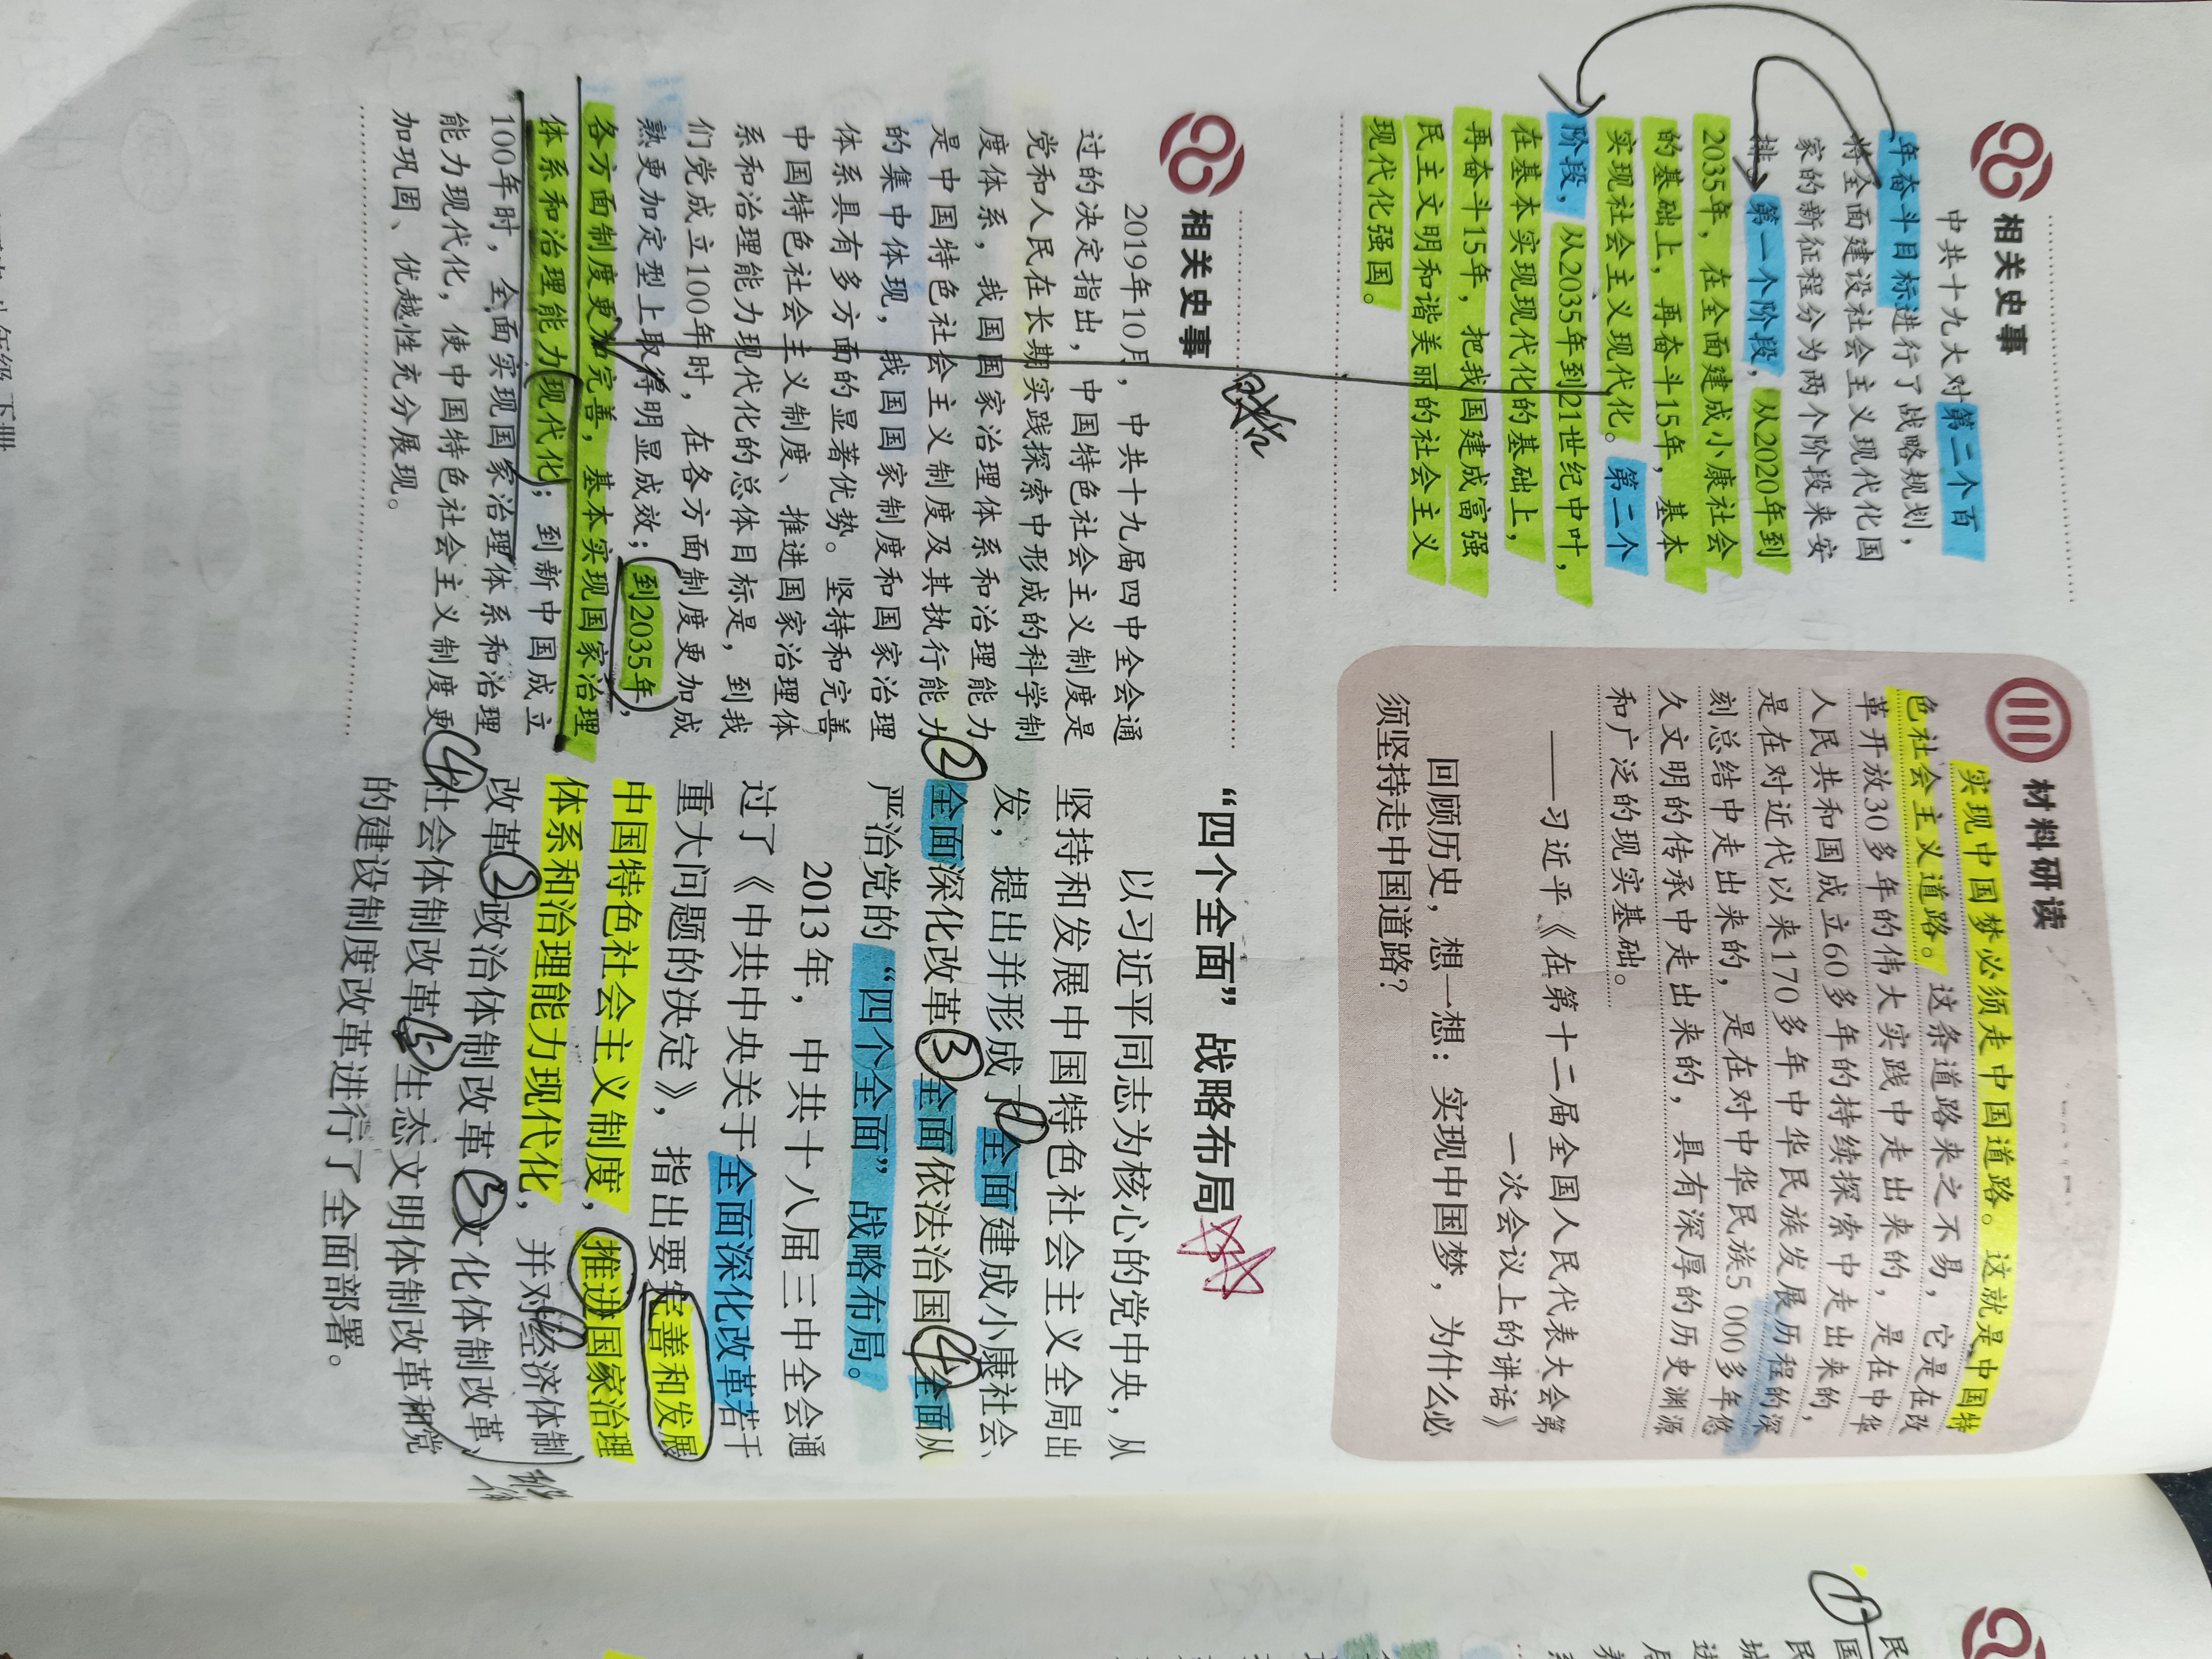 相关史事
中共十九大对第二个百
年奋斗目标进行了战略规划，
将全面建设社会主义现代化国
家的新征程分为两个阶段来安
排。第一个阶段，从2020年到
2035年，在全面建成小康社会
的基础上，再奋斗15年，基本
实现社会主义现代化。第二个
阶段，从2035年到21世纪中叶，
在基本实现现代化的基础上，
再奋斗15年，把我国建成富强
民主文明和谐美丽的社会主义
现代化强国。
材料研读
实现中国梦必须走中国道路。这就是中国特
色社会主义道路。这条道路来之不易，它是在改
革开放30多年的伟大实践中走出来的，是在中华
人民共和国成立60多年的持续探索中走出来的，
是在对近代以来170多年中华民族发展历程的深
刻总结中走出来的，是在对中华民族5 000多年悠
久文明的传承中走出来的，具有深厚的历史渊源
和广泛的现实基础。
——习近平《在第十二届全国人民代表大会第
一次会议上的讲话》
回顾历史，想一想：实现中国梦，为什么必
须坚持走中国道路？
相关史事
2019年10月，中共十九届四中全会通
过的决定指出，中国特色社会主义制度是
党和人民在长期实践探索中形成的科学制
度体系，我国国家治理体系和治理能力
是中国特色社会主义制度及其执行能力
的集中体现，我国国家制度和国家治理
体系具有多方面的显著优势。坚持和完善
中国特色社会主义制度、推进国家治理体
系和治理能力现代化的总体目标是，到我
们党成立100年时，在各方面制度更加成
熟更加定型上取得明显成效；到2035年，
各方面制度更加完善，基本实现国家治理
体系和治理能力现代化；到新中国成立
100年时，全面实现国家治理体系和治理
能力现代化，使中国特色社会主义制度更
加巩固、优越性充分展现。
“四个全面”战略布局
以习近平同志为核心的党中央，从
坚持和发展中国特色社会主义全局出
发，提出并形成了①全面建成小康社会、
②全面深化改革③全面依法治国④全面从
严治党的“四个全面”战略布局。
2013年，中共十八届三中全会通
过了《中共中央关于全面深化改革若干
重大问题的决定》，指出要完善和发展
中国特色社会主义制度，推进国家治理
体系和治理能力现代化，并对①经济体制
改革②政治体制改革③文化体制改革、
④社会体制改革⑤生态文明体制改革和党
的建设制度改革进行了全面部署。
①